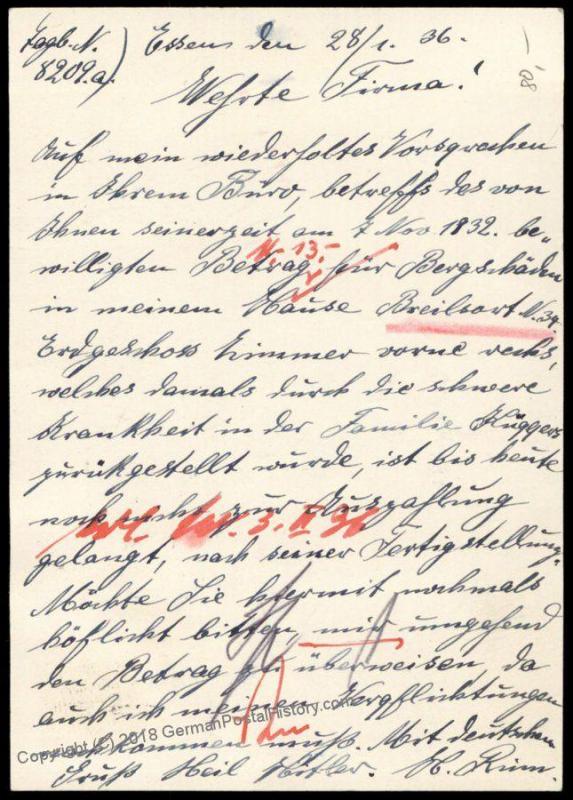 Tagb. N. Essen den 28/1. 36.
8209.a.
80,-
Wehrte Firma!
Auf mein wiederholtes Vorsprachen
in Ihrem Büro, betreffs des von
Ihnen seinerzeit am 7 Nov 1832. be„
M. 13.-
willigten Betrag für Bergschäden
in meinem Hause Breilsort N. 34.
Erdgeschoss Zimmer vorne rechs,
welches damals durch die schwere
Krankheit in der Familie Küppers
zurükgestellt wurde, ist bis heute
noch nicht zur Auszahlung
3. II 36
gelangt, nach seiner Fertigstellung.
Möchte Sie hiermit nochmals
höflicht bitten, mir umgehend
den Betrag zu überweisen, da
auch ich meinen Verpflichtungen
Copyright (C) 2018 GermanPostalHistory.com
nachkommen muß. Mit deutschen
Gruß Heil Hitler. H.